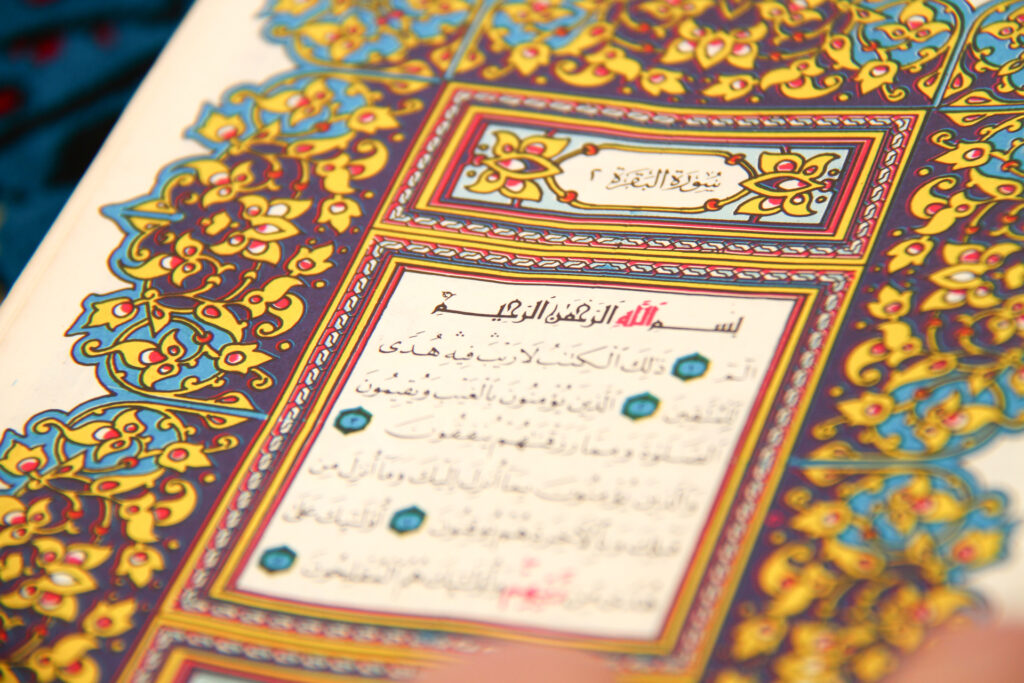 سُورَةُ البَقَرَةِ ٢
بِسْمِ اللَّهِ الرَّحْمَٰنِ الرَّحِيمِ
الٓمٓ ١ ذَٰلِكَ الْكِتَٰبُ لَا رَيْبَ فِيهِ هُدًى
لِّلْمُتَّقِينَ ٢ الَّذِينَ يُؤْمِنُونَ بِالْغَيْبِ وَيُقِيمُونَ
الصَّلَوٰةَ وَمِمَّا رَزَقْنَٰهُمْ يُنفِقُونَ ٣
وَالَّذِينَ يُؤْمِنُونَ بِمَا أُنزِلَ إِلَيْكَ وَمَا أُنزِلَ مِن
قَبْلِكَ وَبِالْآخِرَةِ هُمْ يُوقِنُونَ ٤ أُوْلَٰئِكَ عَلَىٰ
هُدًى مِّن رَّبِّهِمْ وَأُوْلَٰئِكَ هُمُ الْمُفْلِحُونَ ٥